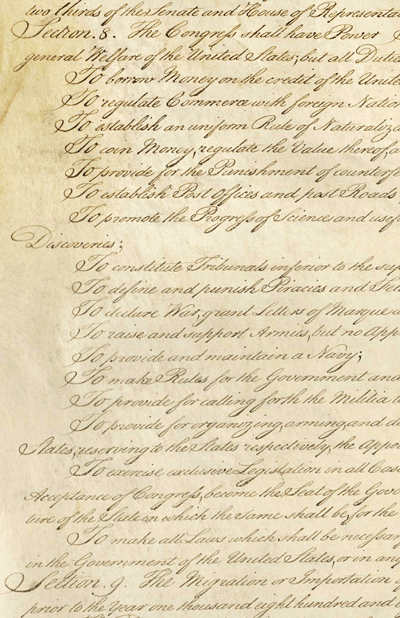 two thirds of the Senate and House of Representa
Section. 8. The Congress shall have Power
general Welfare of the United States; but all Dutie
To borrow Money on the credit of the Unite
To regulate Commerce with foreign Nation
To establish an uniform Rule of Naturaliza
To coin Money, regulate the Value thereof, a
To provide for the Punishment of counterfe
To establish Post Offices and post Roads
To promote the Progress of Science and usef
Discoveries;
To constitute Tribunals inferior to the sup
To define and punish Piracies and Felo
To declare War, grant Letters of Marque a
To raise and support Armies, but no App
To provide and maintain a Navy;
To make Rules for the Government and
To provide for calling forth the Militia t
To provide for organizing, arming, and d
States, reserving to the States respectively, the Appo
To exercise exclusive Legislation in all Cas
Acceptance of Congress, become the Seat of the Gove
ture of the State in which the Same shall be, for the
To make all Laws which shall be necessar
in the Government of the United States, or in any
Section. 9. The Migration or Importation o
prior to the Year one thousand eight hundred and e